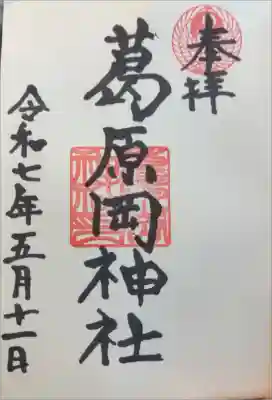 奉拝
葛原岡神社
令和七年五月十一日